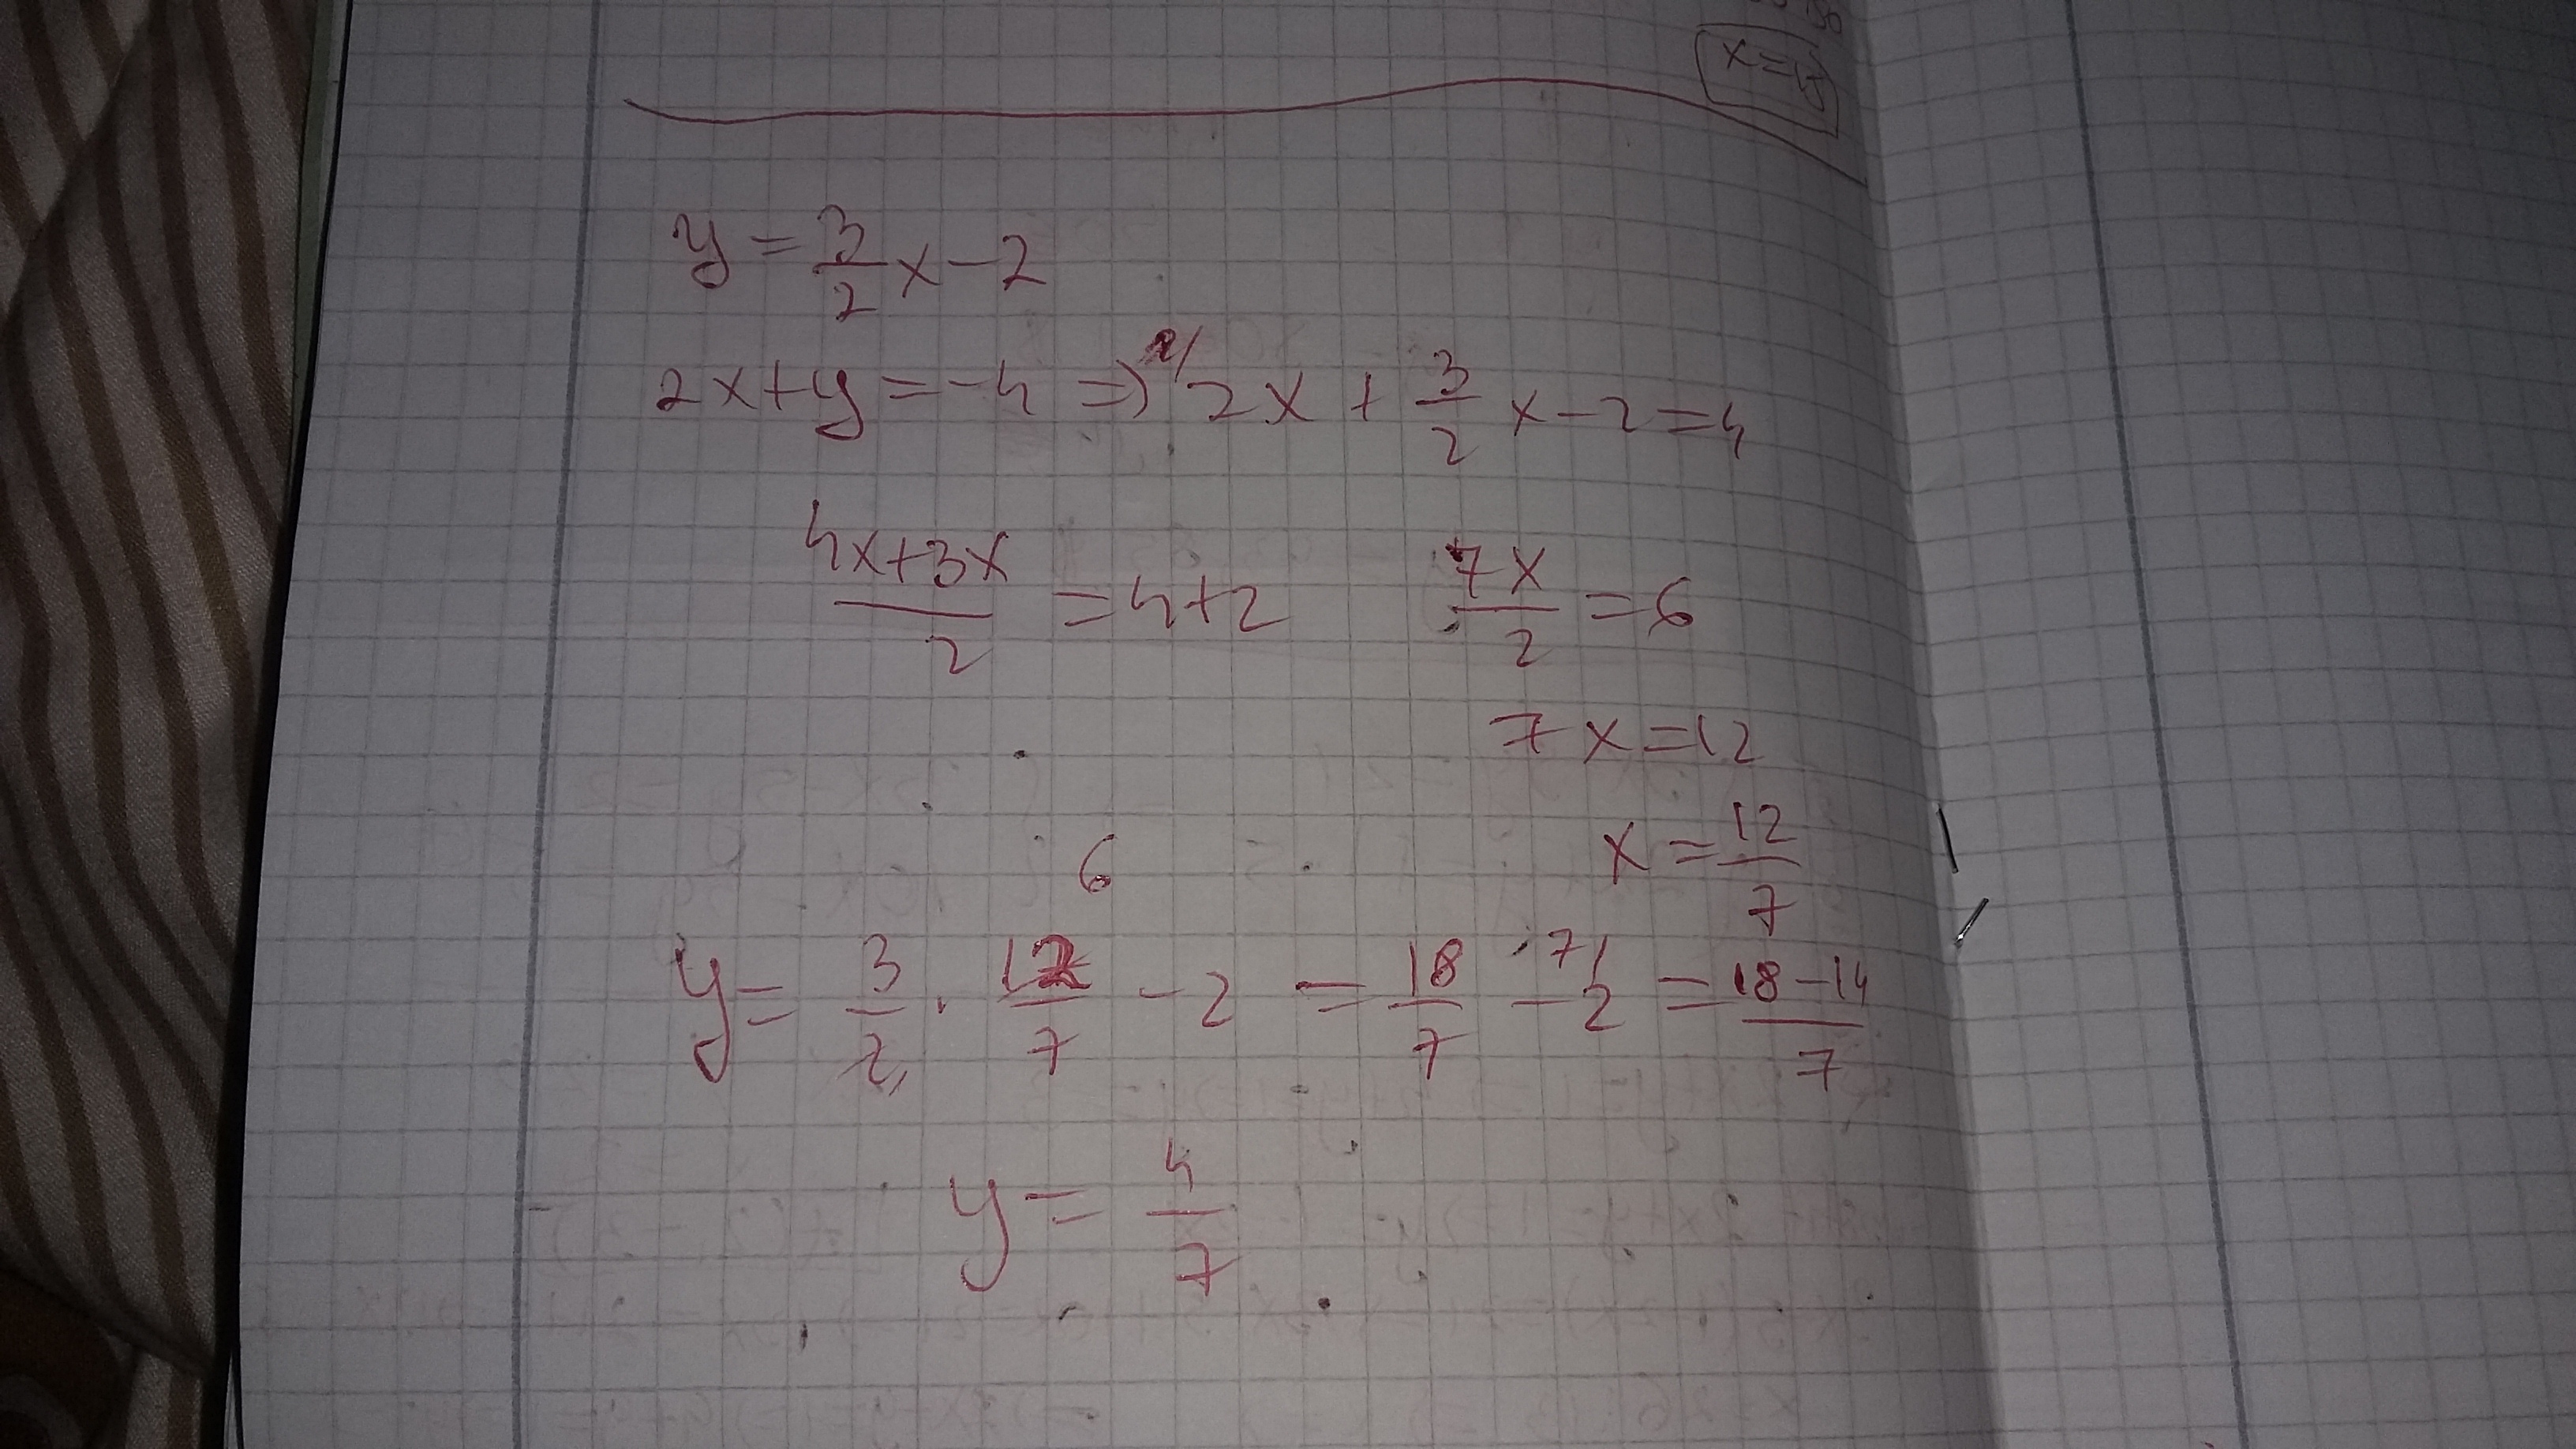 x=
y = 3/2 x - 2
2x + y = -4 => 2/ 2x + 3/2 x - 2 = 4
4x+3x/2 = 4+2 7x/2 = 6
7x = 12
x = 12/7
6
y = 3/2 · 12/7 - 2 = 18/7 - 7/ 2 = 18-14/7
y = 4/7